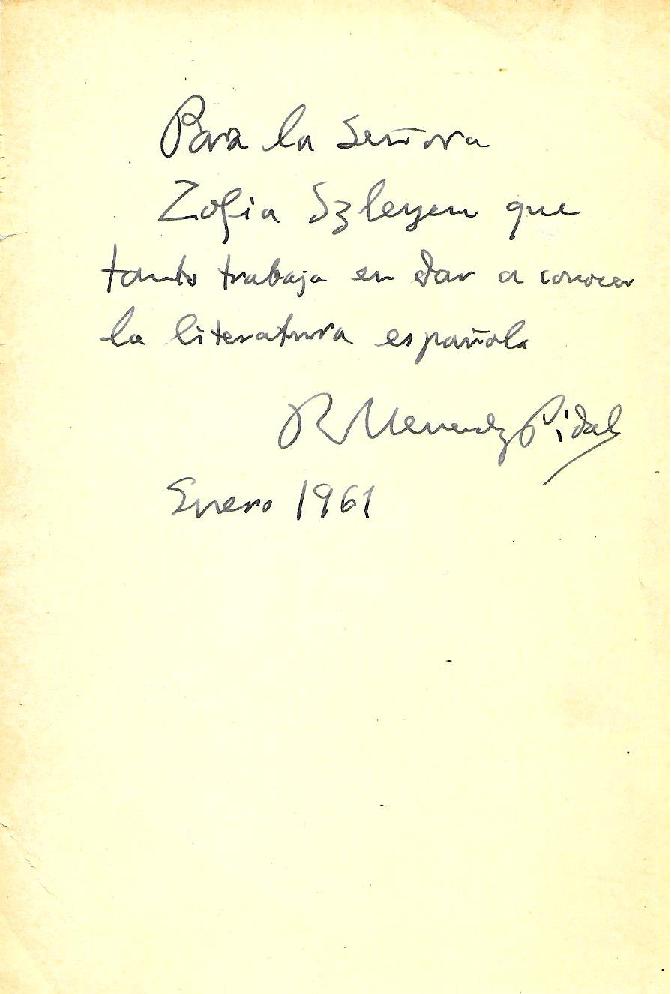 Para la Señora
Zofia Szleyen que
tanto trabaja en dar a conocer
la literatura española
R Menendez Pidal
Enero 1961